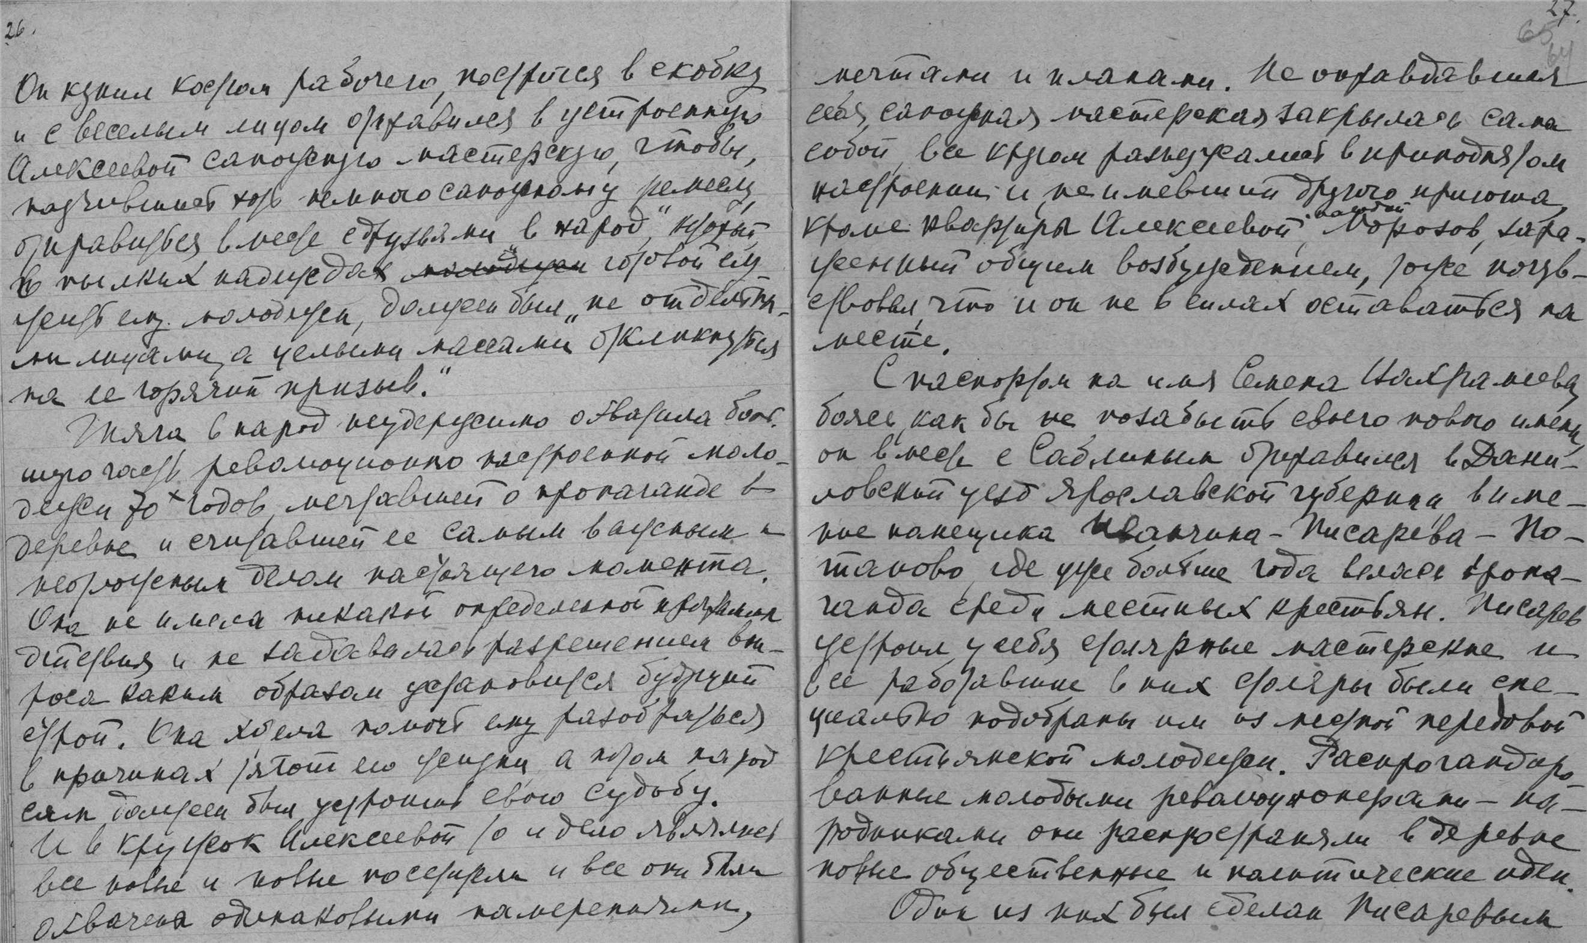 26.
Он купил костюм рабочего, постригся в скобку
и с веселым лицом отправился в устроенную
Алексеевой сапожную мастерскую, чтобы,
подучившись хоть немного сапожному ремеслу,
отправиться вместе с друзьями "в народ", который,
в пылких надеждах молодежи готовой слу-
жить ему молодежи, должен был "не отдельны-
ми лицами, а целыми массами откликнуться
на ее горячий призыв."
Тяга в народ неудержимо охватила боль-
шую часть революционно настроенной моло-
дежи 70х годов, мечтавшей о пропаганде в
деревне и считавшей ее самым важным и
неотложным делом настоящего момента.
Она не имела никакой определенной программы
действия и не задавалась разрешением воп-
роса каким образом установится будущий
строй. Она хотела помочь ему разобраться
в причинах тягот его жизни, а потом народ
сам должен был устроить свою судьбу.
И в кружок Алексеевой то и дело являлись
все новые и новые посетители и все они были
охвачены одинаковыми намерениями,
27.
65
64
мечтами и планами. Не оправдавшая
себя, сапожная мастерская закрылась сама
собой, все кругом разъезжались в приподнятом
настроении и, не имевший другого приюта,
кроме квартиры Алексеевой, Морозов, зара-
женный общим возбуждением, тоже почув-
ствовал, что и он не в силах оставаться на
месте.
С паспортом на имя Семена Вахрамеева,
боясь, как бы не позабыть своего нового имени,
он вместе с Саблиным отправился в Дани-
ловский уезд Ярославской губернии в име-
ние помещика Иванчина-Писарева - По-
тапово, где уже больше года велась пропа-
ганда среди местных крестьян. Писарев
устроил у себя столярные мастерские и
все работавшие в них столяры были спе-
циально подобраны им из местной передовой
крестьянской молодежи. Распрогандиро
ванные молодыми революционерами - на-
родниками они распространяли в деревне
новые общественные и политические идеи.
Один из них был сделан Писаревым